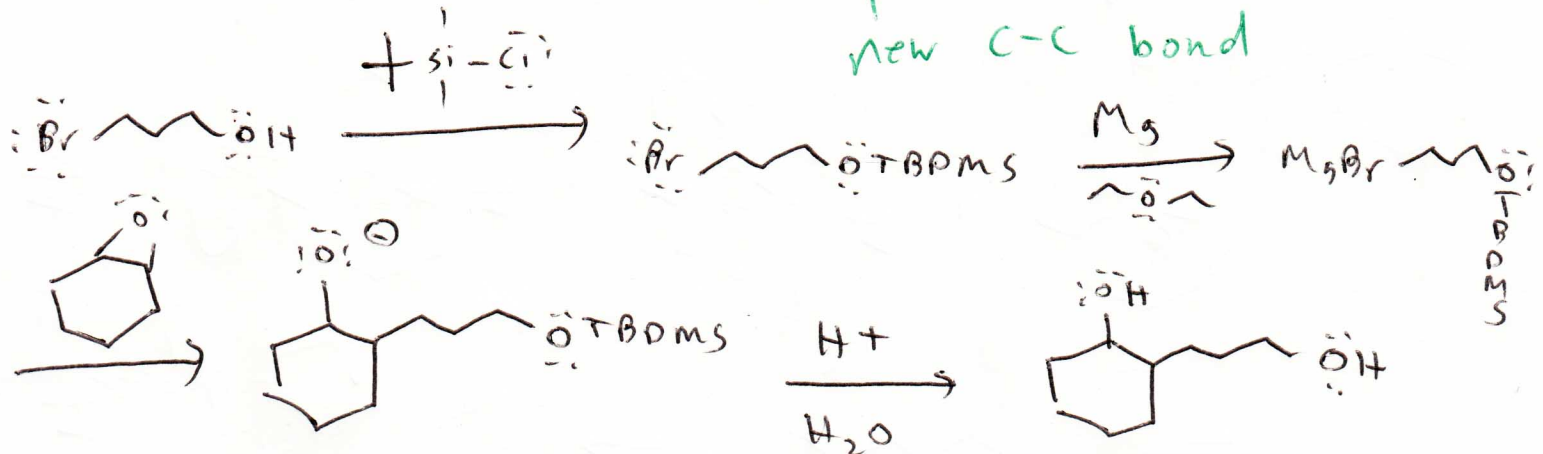 new C-C bond
Si-Cl
Br OH
Br OTBDMS
Mg
O
MgBr O
T
B
D
M
S
O
O ⊖
OTBDMS
H+
H2O
OH
OH